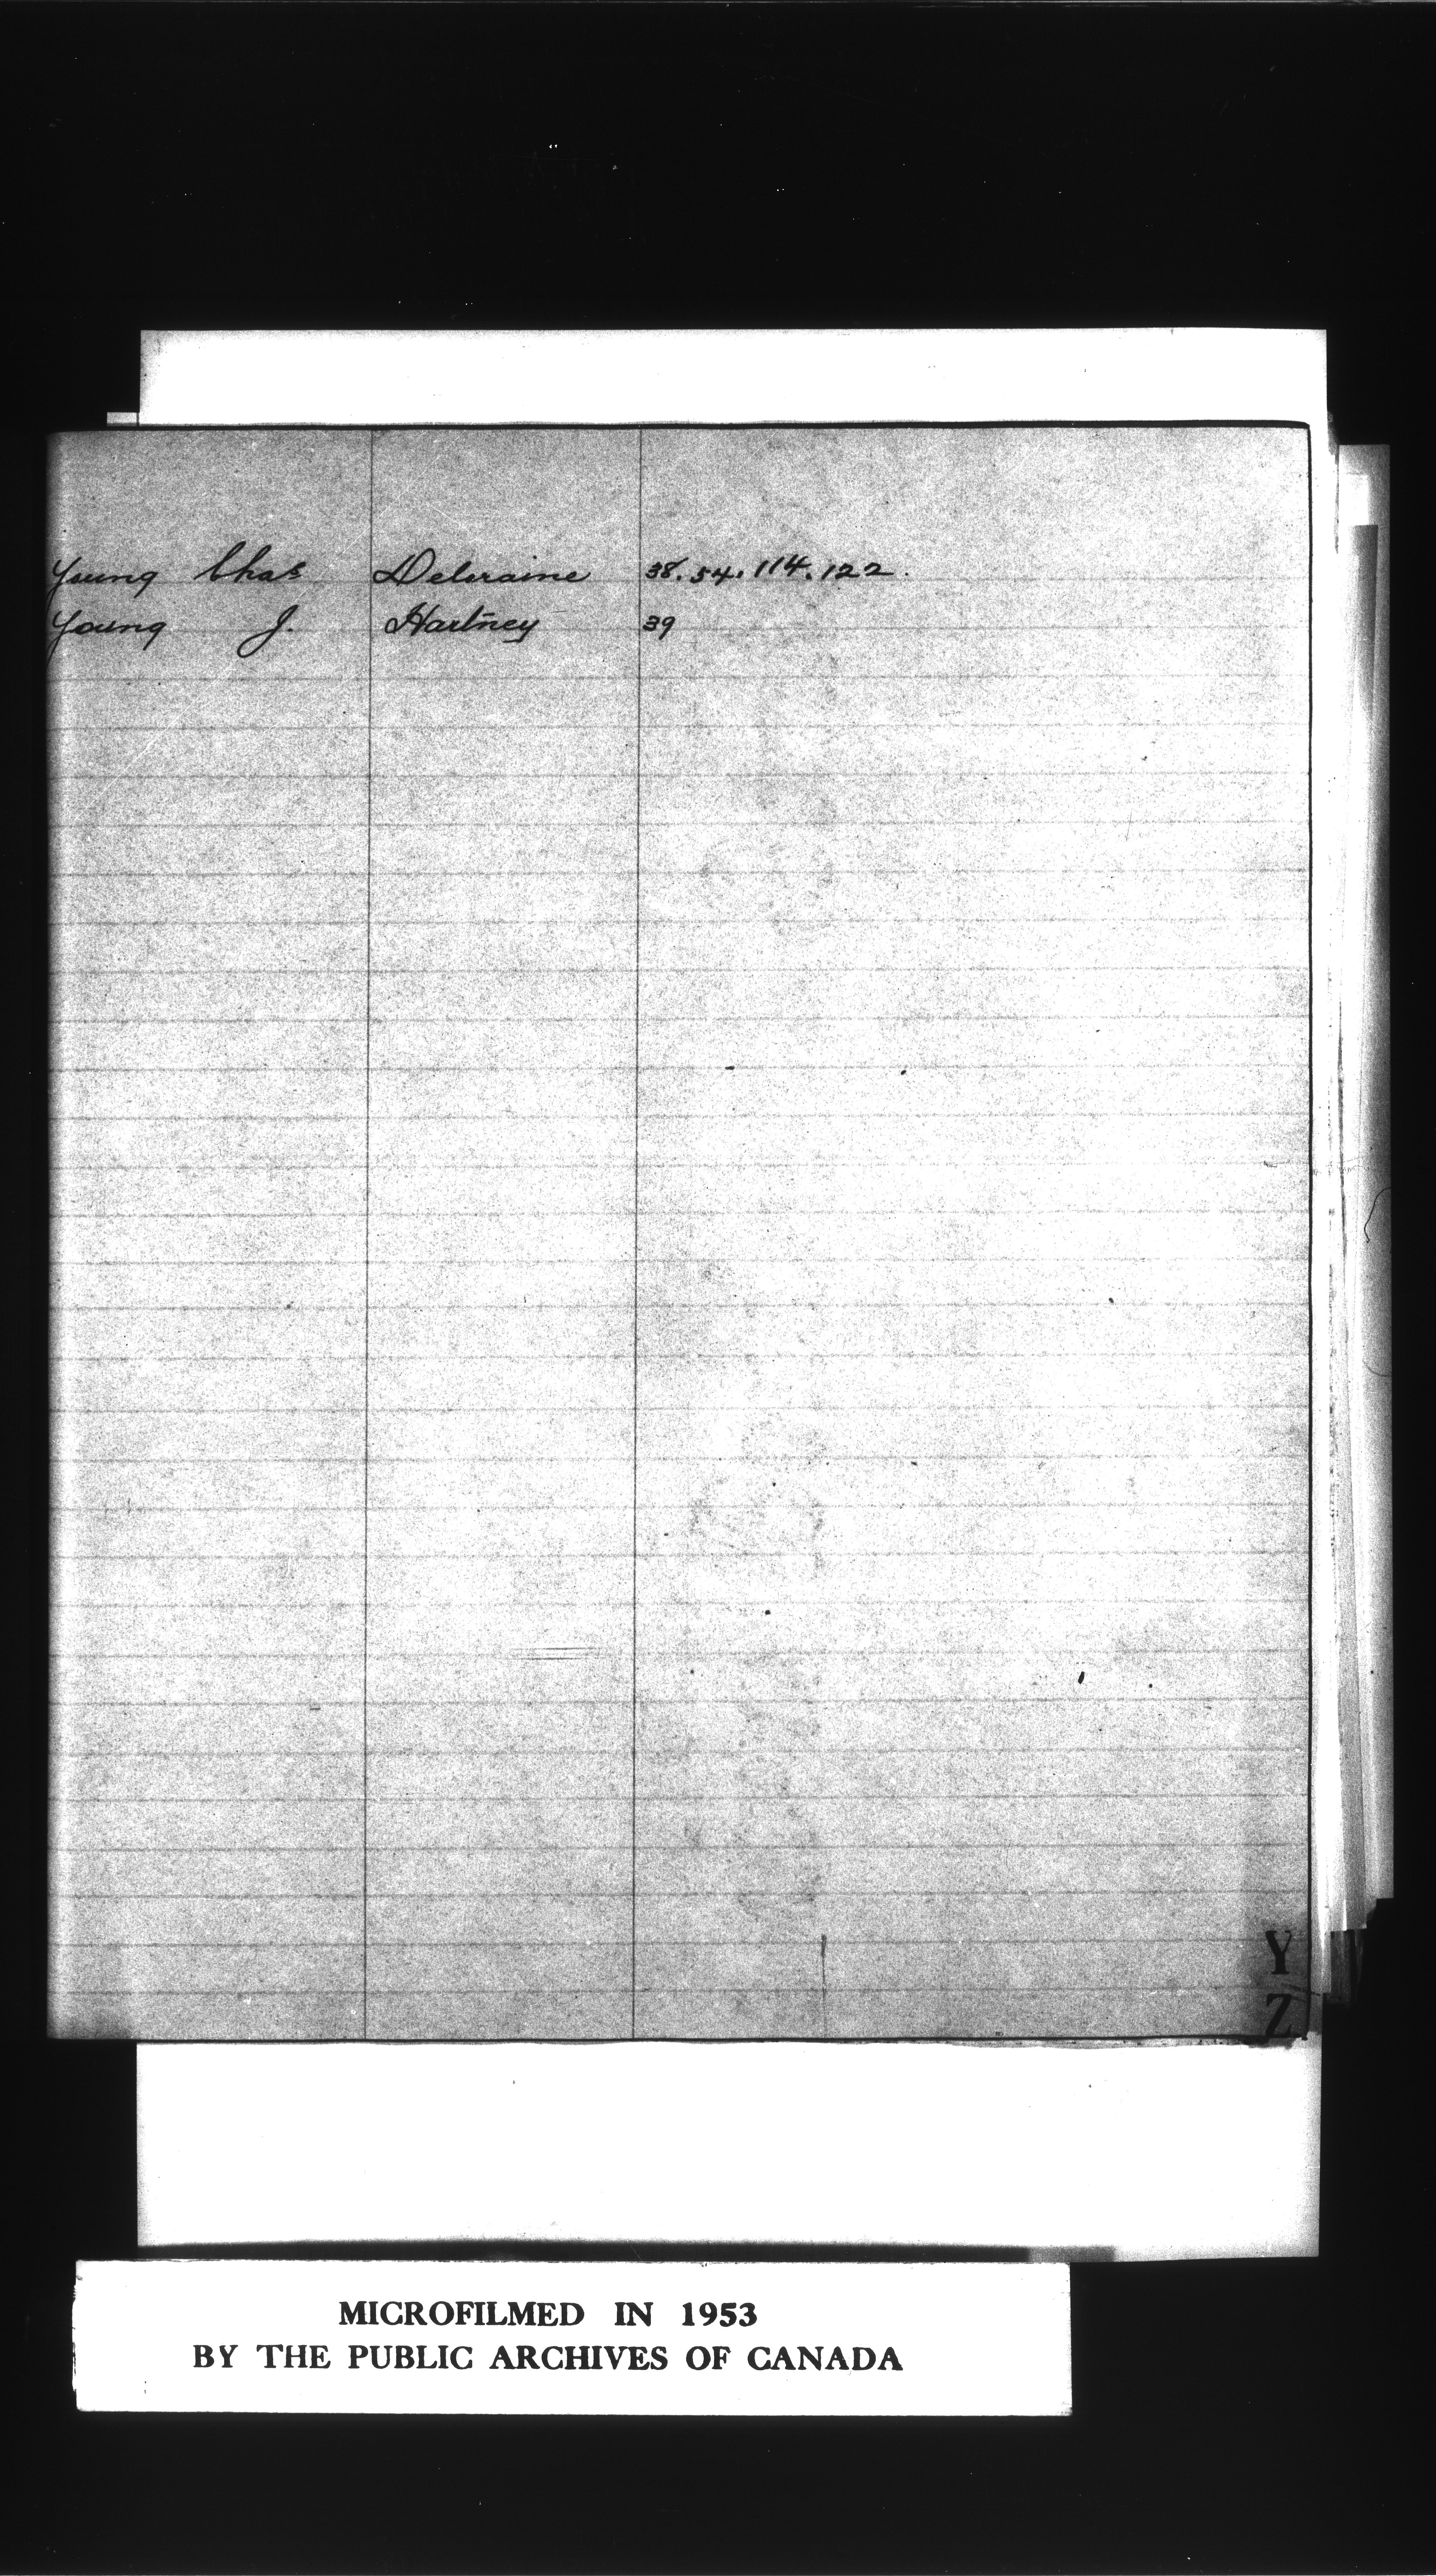 Young Chas Deloraine 38. 54. 114. 122.
Young J. Hartney 39
Y
Z
MICROFILMED IN 1953
BY THE PUBLIC ARCHIVES OF CANADA